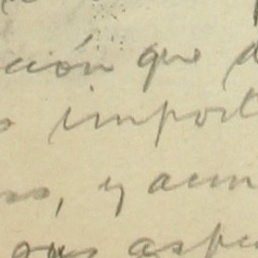 ción que d
s import
os, y aun
sus aspec